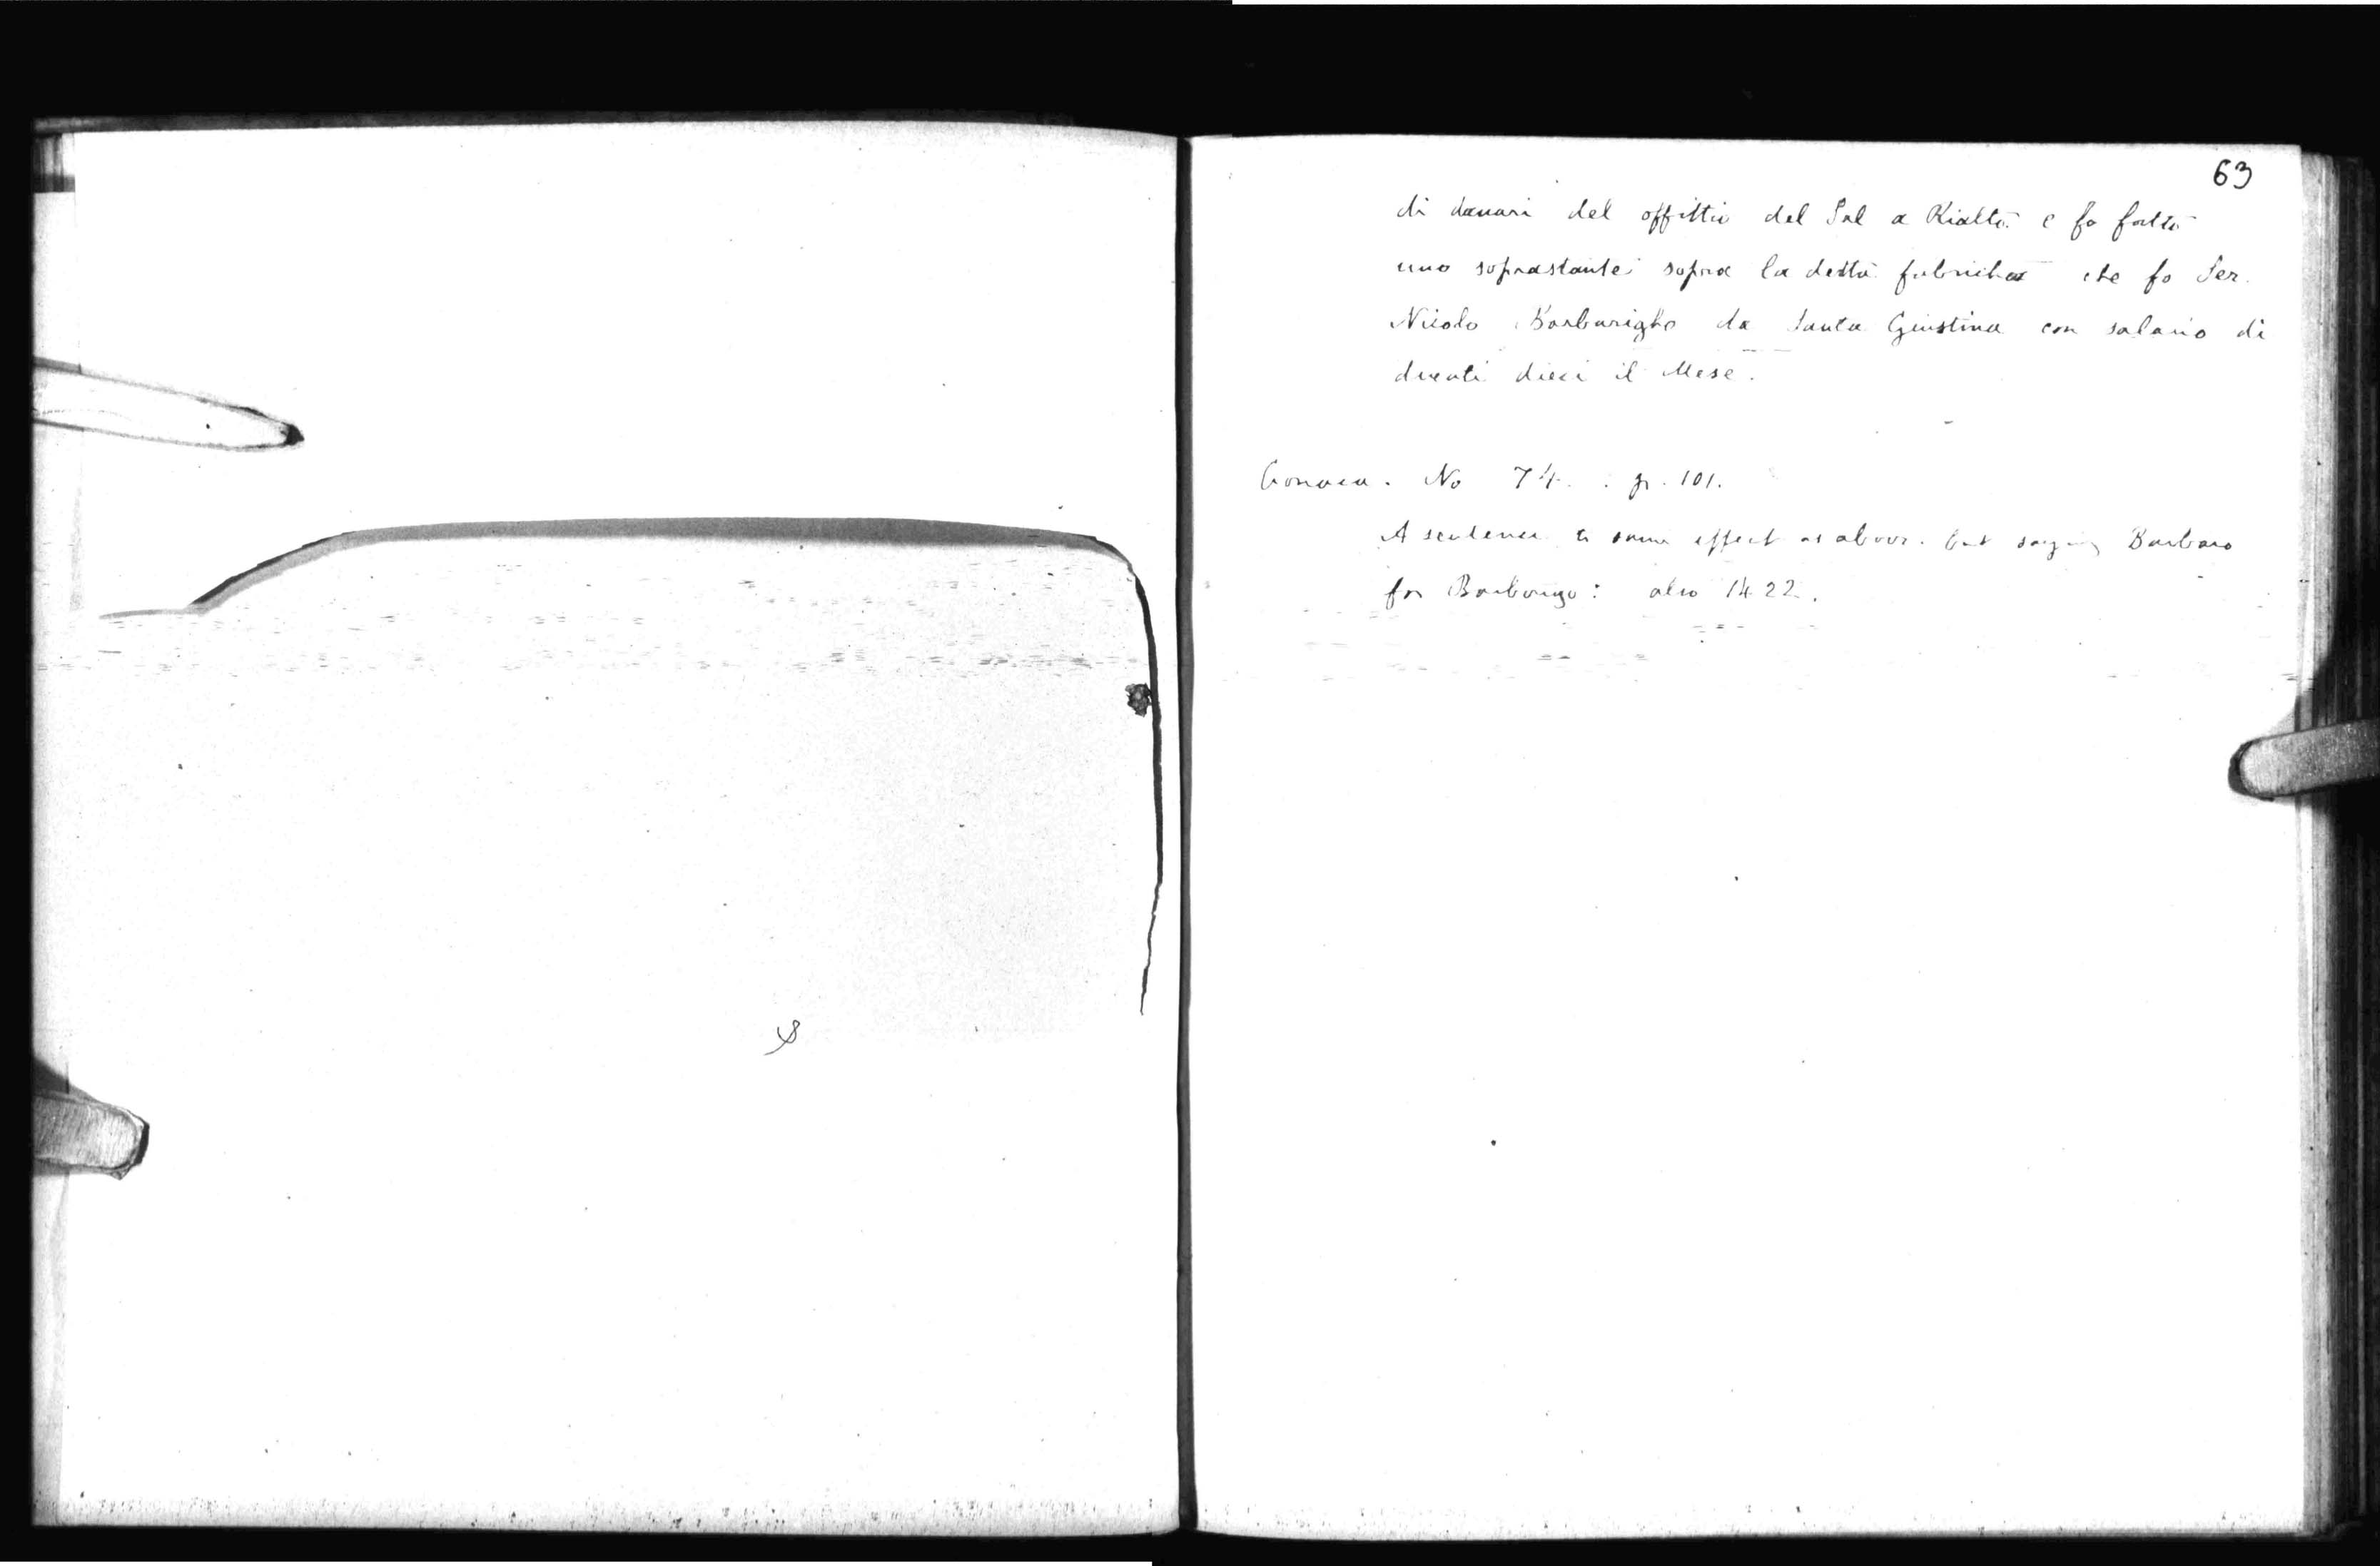 63
di danari del offittio del Sal a Rialto. e fo fatto
uno soprastante sopra la detta fabricha che fo Ser.
Nicolo Barbarigho da Santa Giustina con salario di
ducati dieci il Mese.
Cronaca. No 74. p. 101.
A sentence to same effect as above. but saying Barbaro
for Barbarigo: also 1422.